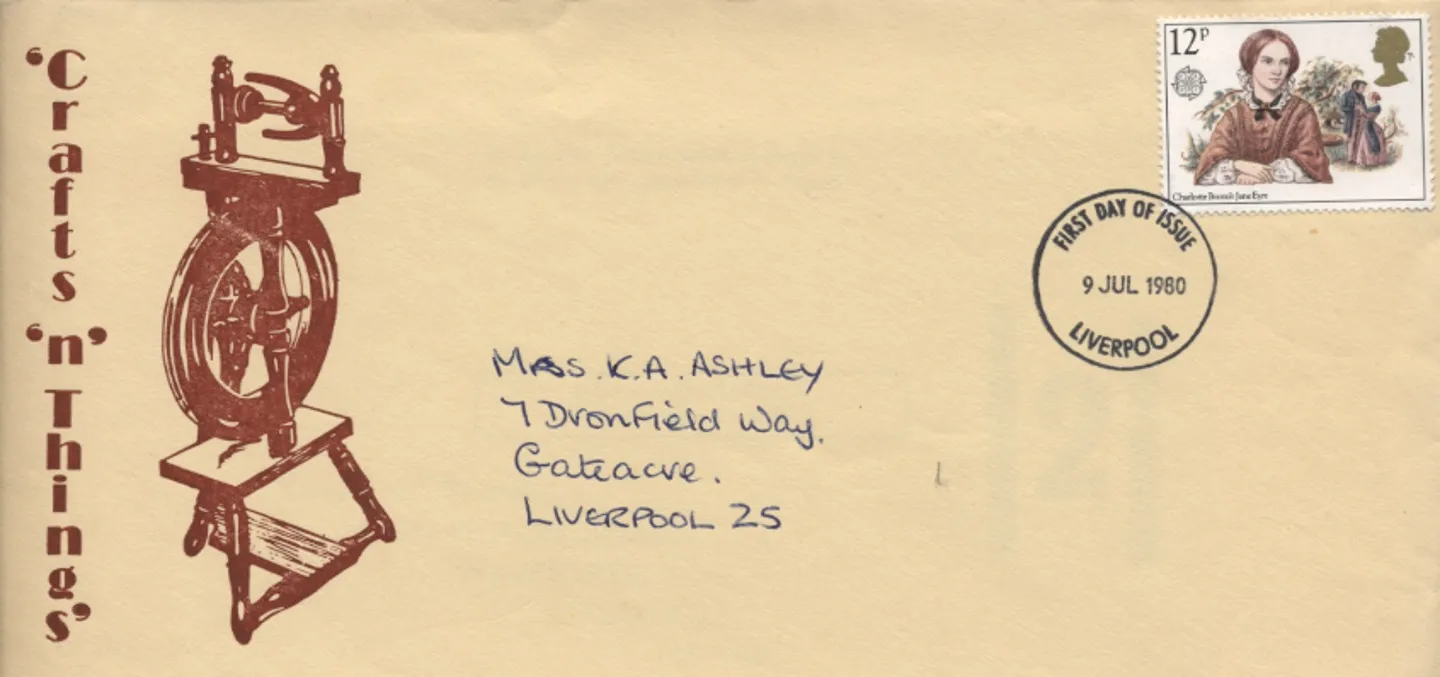 ‘Crafts
‘n’
Things’
12P
Charlotte Brontë Jane Eyre
FIRST DAY OF ISSUE
9 JUL 1980
LIVERPOOL
K.A. ASHLEY
7 Dronfield Way,
Gateacre.
LIVERPOOL 25